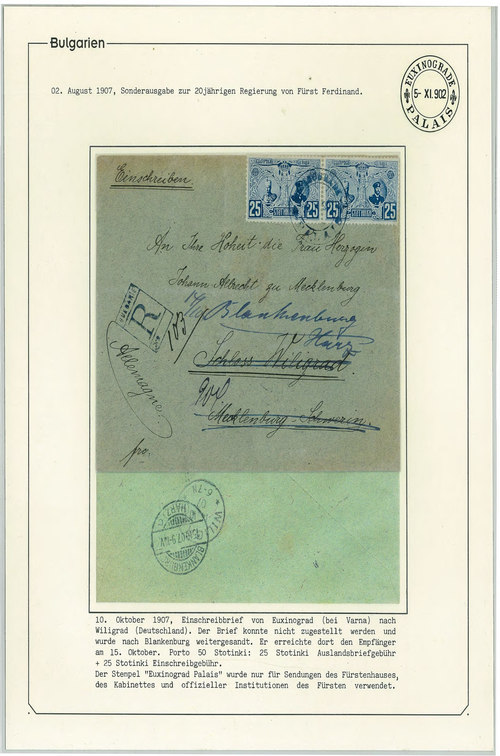 Bulgarien
EUXINOGRADE
5- XI.902
PALAIS
02. August 1907, Sonderausgabe zur 20jährigen Regierung von Fürst Ferdinand.
Einschreiben
25 25 25 25
An Ihre Hoheit die Frau Herzogin
Johann Albrecht zu Mecklenburg
Blankenburg
Harz
R
103
Schloss Wiligrad.
Allemagne.
Mecklenburg-Schwerin.
fro.
6-7N
WILI
HARZ
BLANKENBURG
10. Oktober 1907, Einschreibbrief von Euxinograd (bei Varna) nach
Wiligrad (Deutschland). Der Brief konnte nicht zugestellt werden und
wurde nach Blankenburg weitergesandt. Er erreichte dort den Empfänger
am 15. Oktober. Porto 50 Stotinki: 25 Stotinki Auslandsbriefgebühr
+ 25 Stotinki Einschreibgebühr.
Der Stempel "Euxinograd Palais" wurde nur für Sendungen des Fürstenhauses,
des Kabinettes und offizieller Institutionen des Fürsten verwendet.